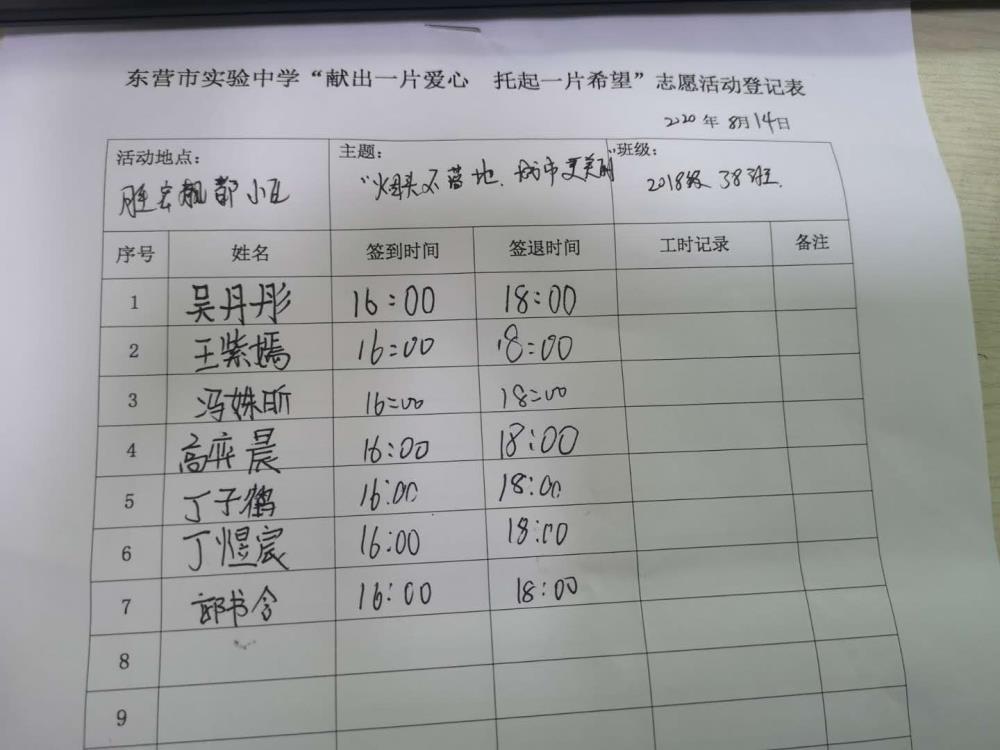 东营市实验中学“献出一片爱心 托起一片希望”志愿活动登记表
2020年8月14日
活动地点： 主题： 班级：
胜宏枫都小区 “烟头不落地、城市更美丽” 2018级 38班.
序号 姓名 签到时间 签退时间 工时记录 备注
1 吴丹彤 16:00 18:00
2 王紫嫣 16:00 18:00
3 冯姝昕 16:00 18:00
4 高弈晨 16:00 18:00
5 丁子鹤 16:00 18:00
6 丁煜宸 16:00 18:00
7 书含 16:00 18:00
8
9